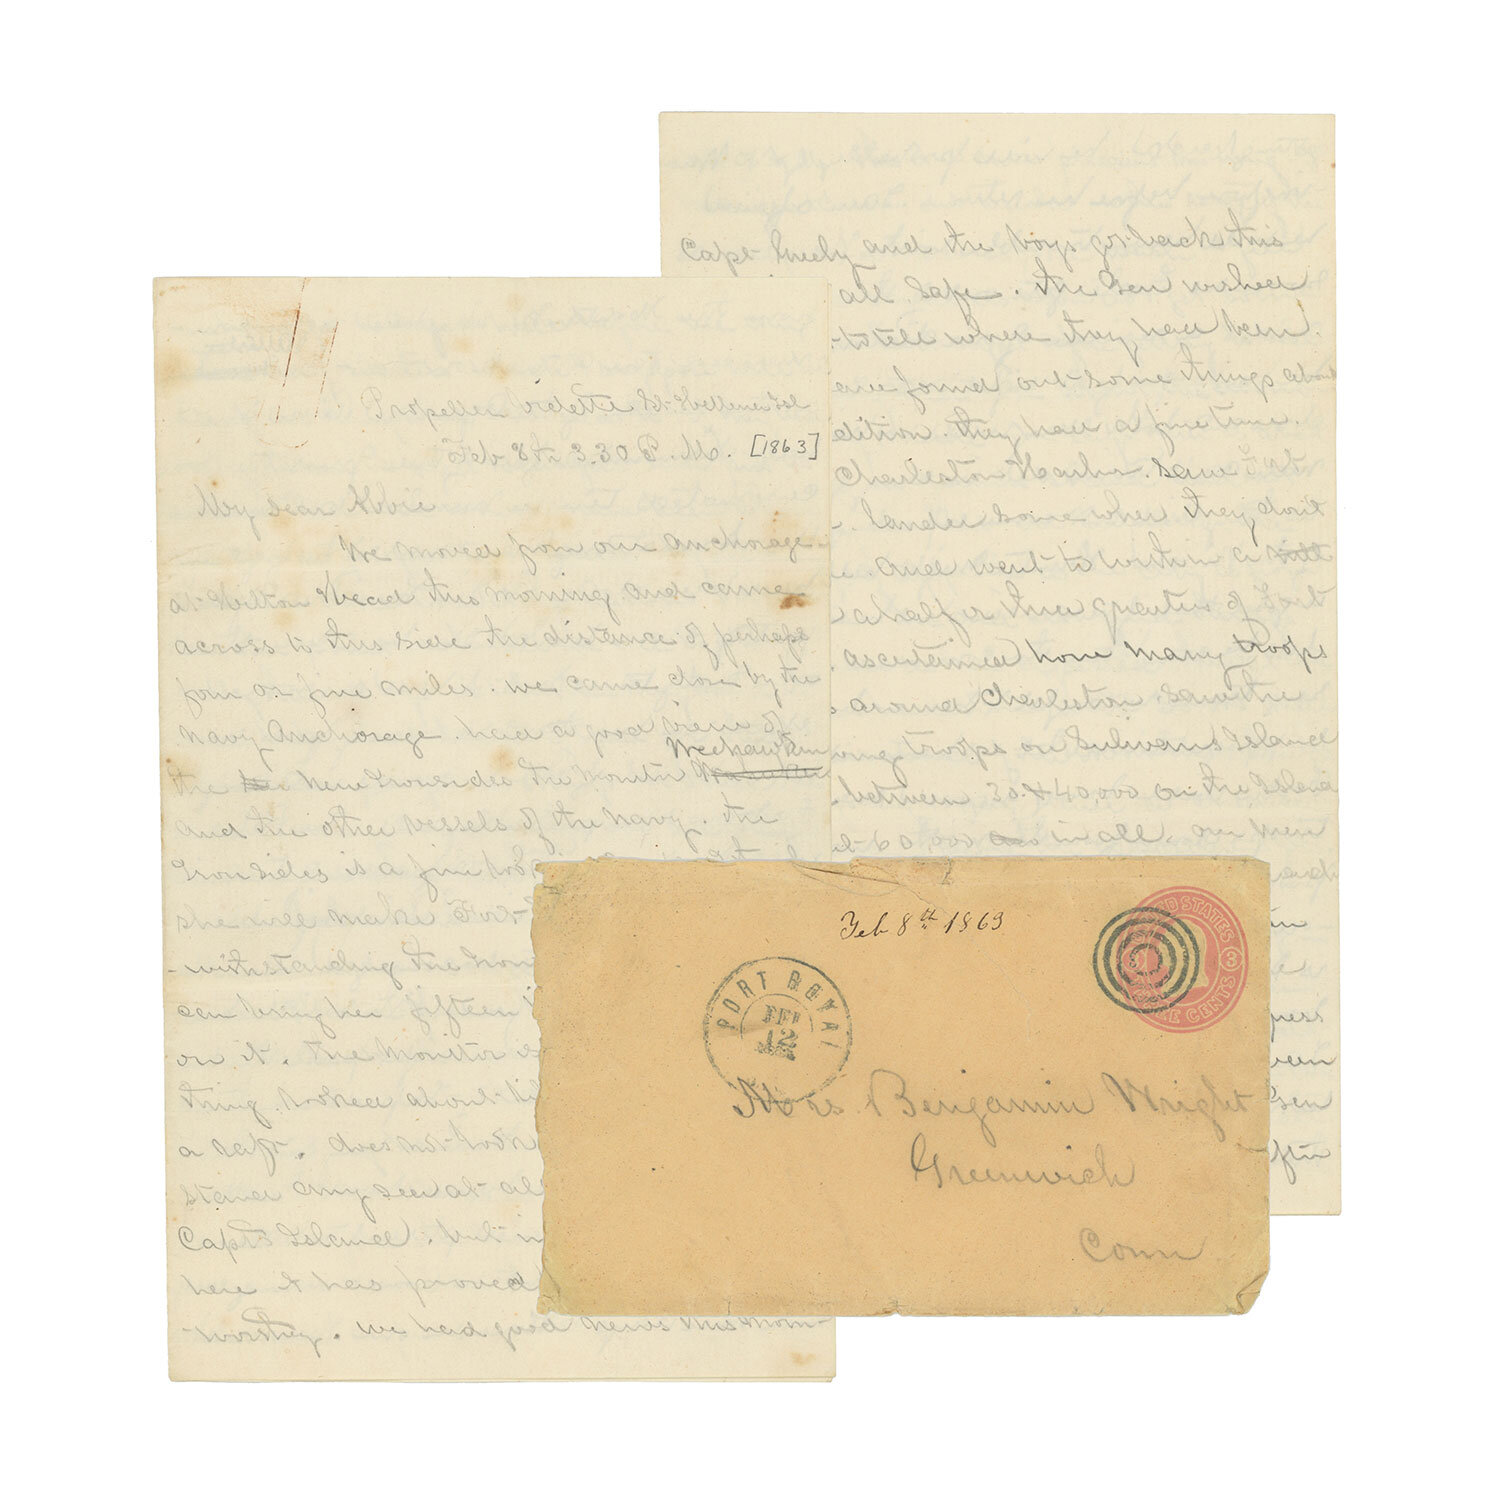 Propeller Vidette St. Hellena Isl
Feb 8th 3.30 P.M. [1863]
My dear Abbie
We moved from our anchorage
at Hilton Head this morning and came
across to this side the distance of perhaps
four or five miles. we came close by the
Navy Anchorage. had a good view of
the New Ironsides the Monitor Weehawken
and the other vessels of the navy. the
Ironsides is a fine
she will make Fort
-withstanding the Iron
can bring her fifteen
on it. the Monitor is
thing. looked about li
a raft. does not look
stand any sea at al
Capts Island. but i
here it has proved
-worthy. we had good news this morn-
Capt Greely and the boys got back this
all safe. the Gen wished
to tell where they had been.
ave found out some things about
dition. they had a fine time.
Charleston Harbor. saw Fort
landed some wher they don't
and went to within a mill
a half or three quarters of Fort
ascertained how many troops
around Charleston. saw the
troops on Sulivans Island
between 30 & 40,000 on the Island
60,000 in all. our men
been
Gen
after
Feb 8th 1863
PORT ROYAL
FEB
12
UNITED STATES
3
THREE CENTS
Mrs. Benjamin Wright
Greenwich
Conn